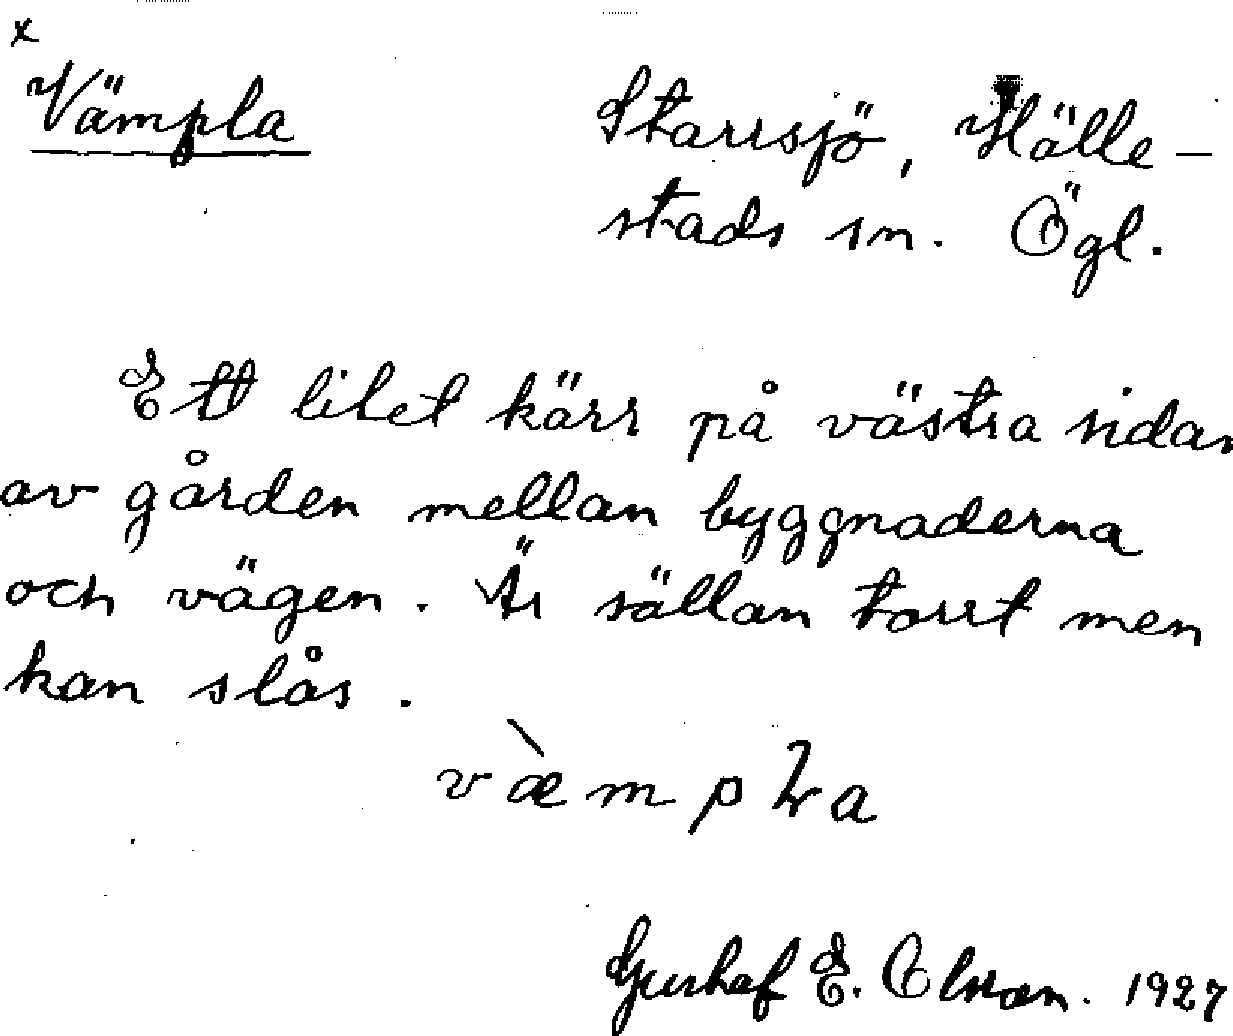 x
Vämpla
Starrsjö, Hälle-
stads sn. Ögl.
Ett litet kärr på västra sidan
av gården mellan byggnaderna
och vägen. Är sällan torrt men
kan slås.
Gustaf E. Olsson. 1927